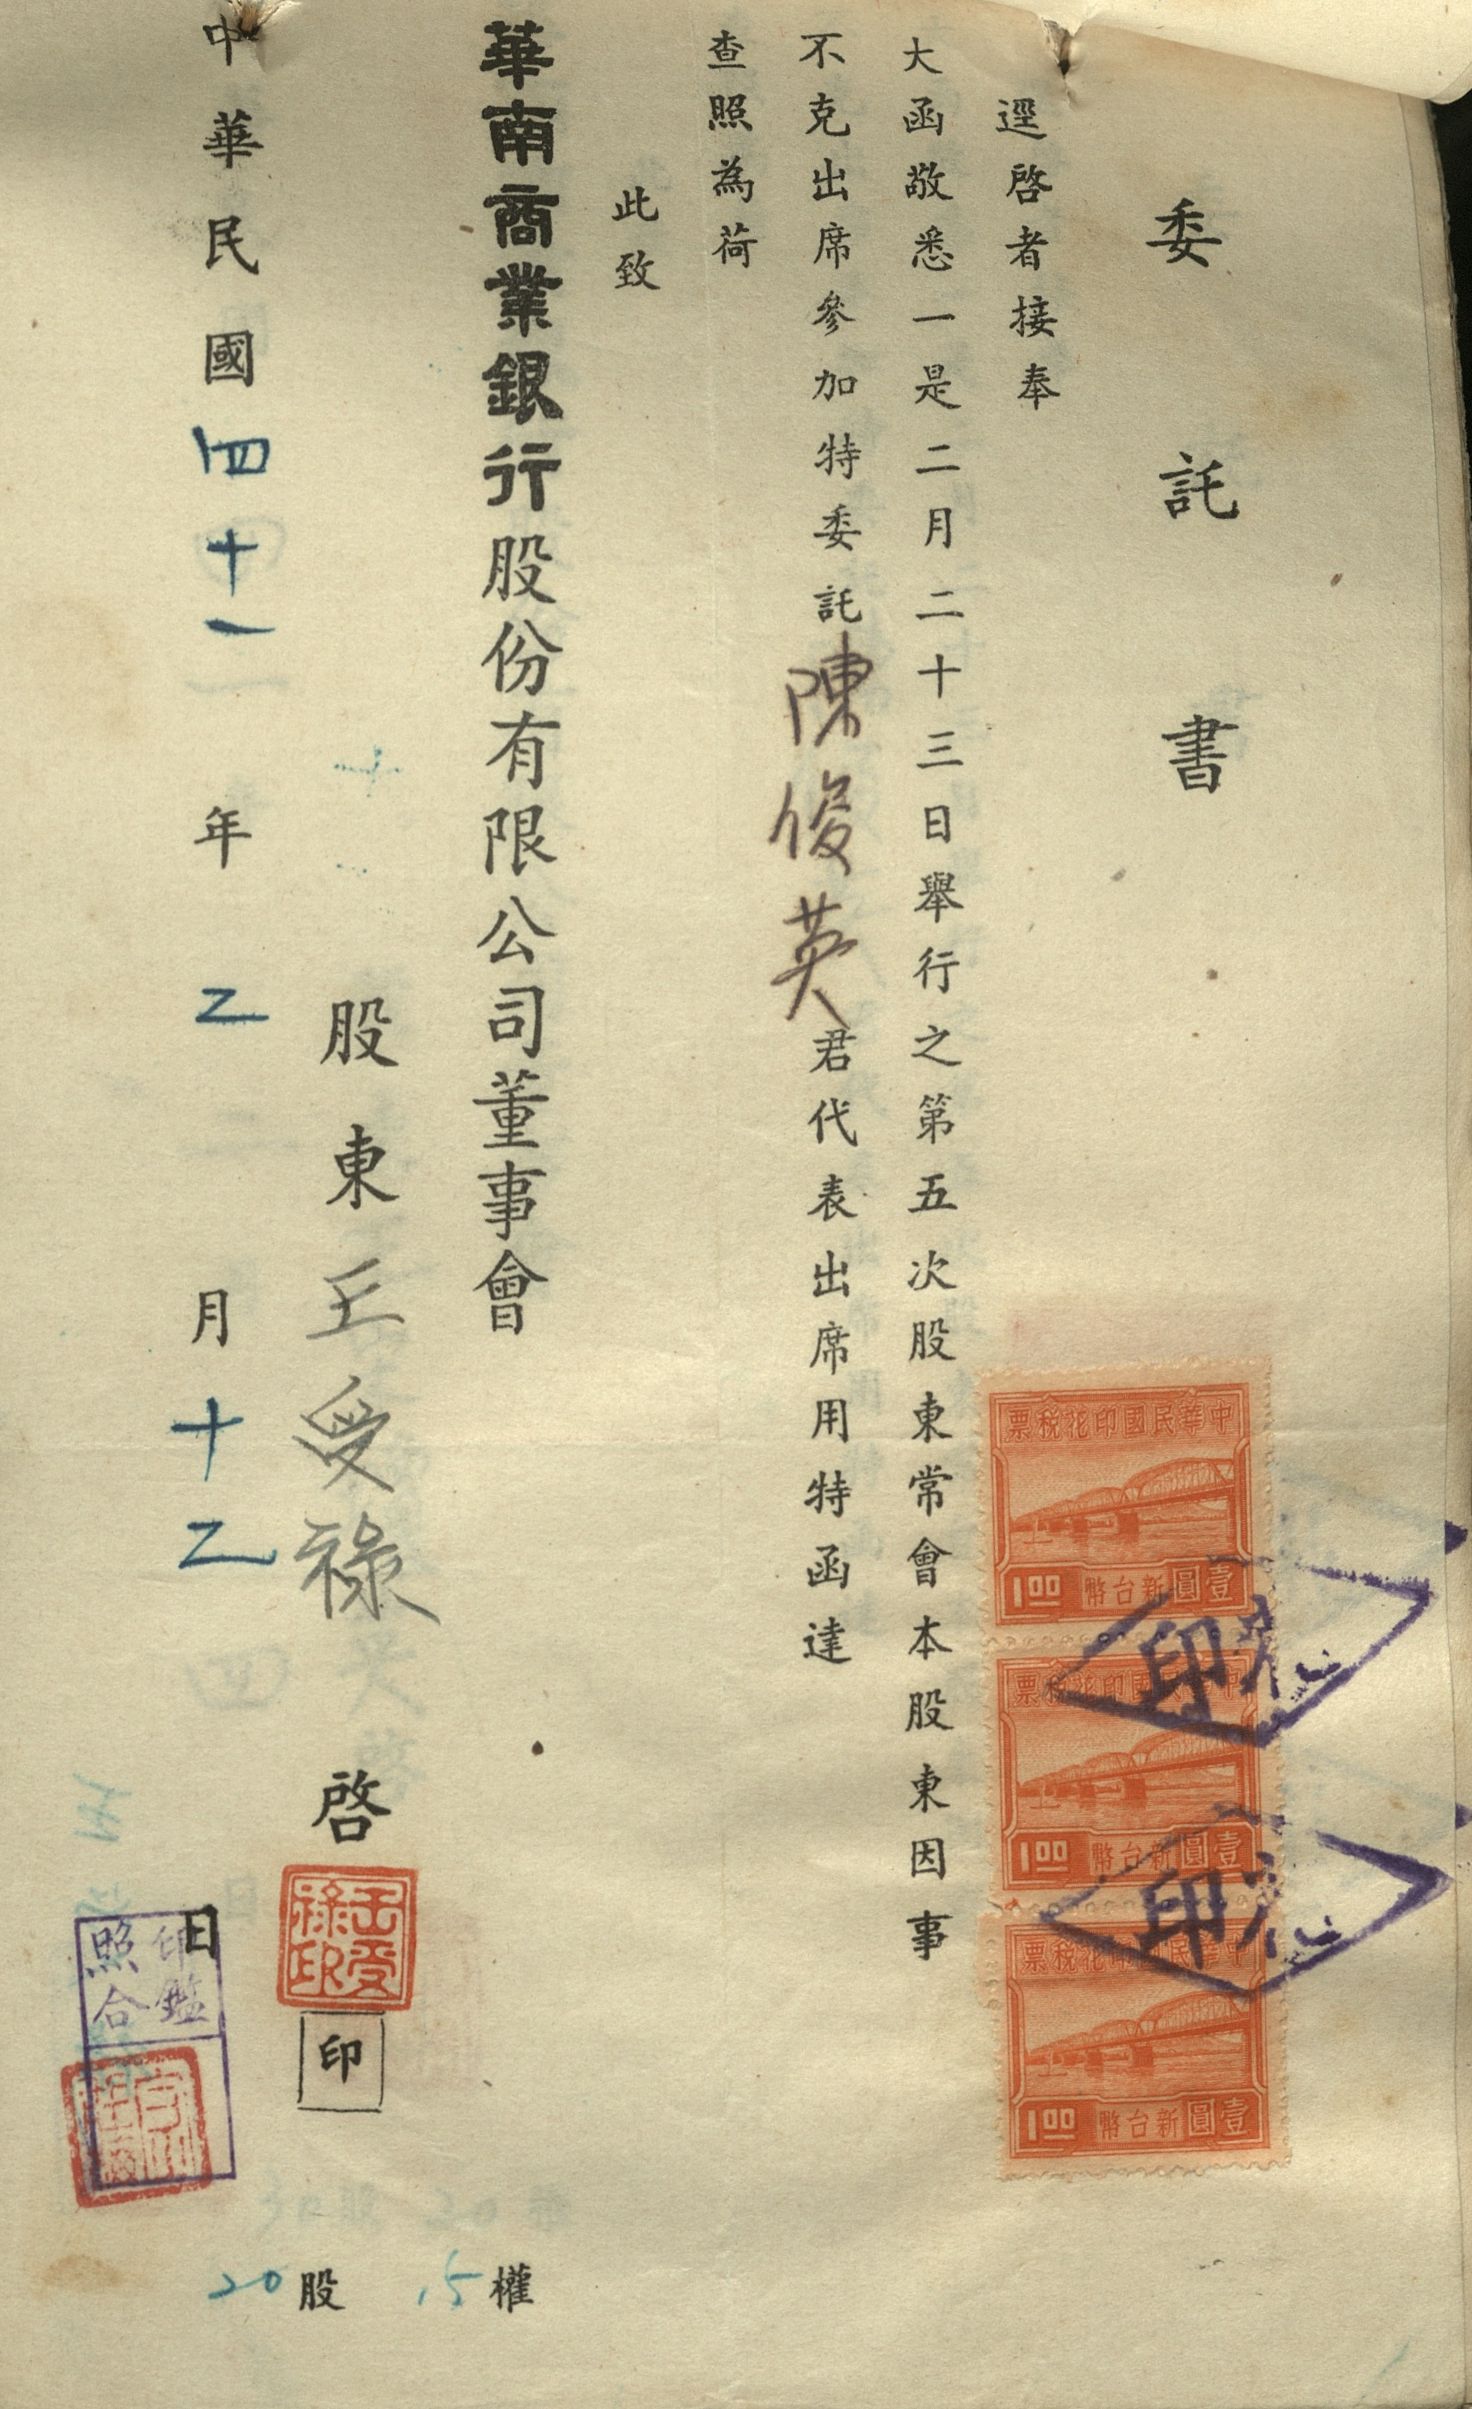 委託書
逕啓者接奉
大函敬悉一是二月二十三日舉行之第五次股東常會本股東因事
不克出席參加特委託陳俊英君代表出席用特函達
查照為荷
此致
華南商業銀行股份有限公司董事會
股東王受祿啓
王受祿印
印
中華民國四十一年乙月十乙日
印鑑
照合
20股 15權
中華民國印花稅票
壹圓新台幣 1.00
印花
中華民國印花稅票
壹圓新台幣 1.00
印花
中華民國印花稅票
壹圓新台幣 1.00